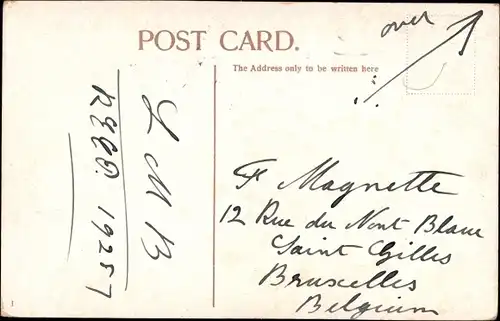 over
POST CARD.
The Address only to be written here
L M B
Fr Magnette
12 Rue du Mont Blanc
Saint Gilles
Bruxelles
Belgium
19257
1